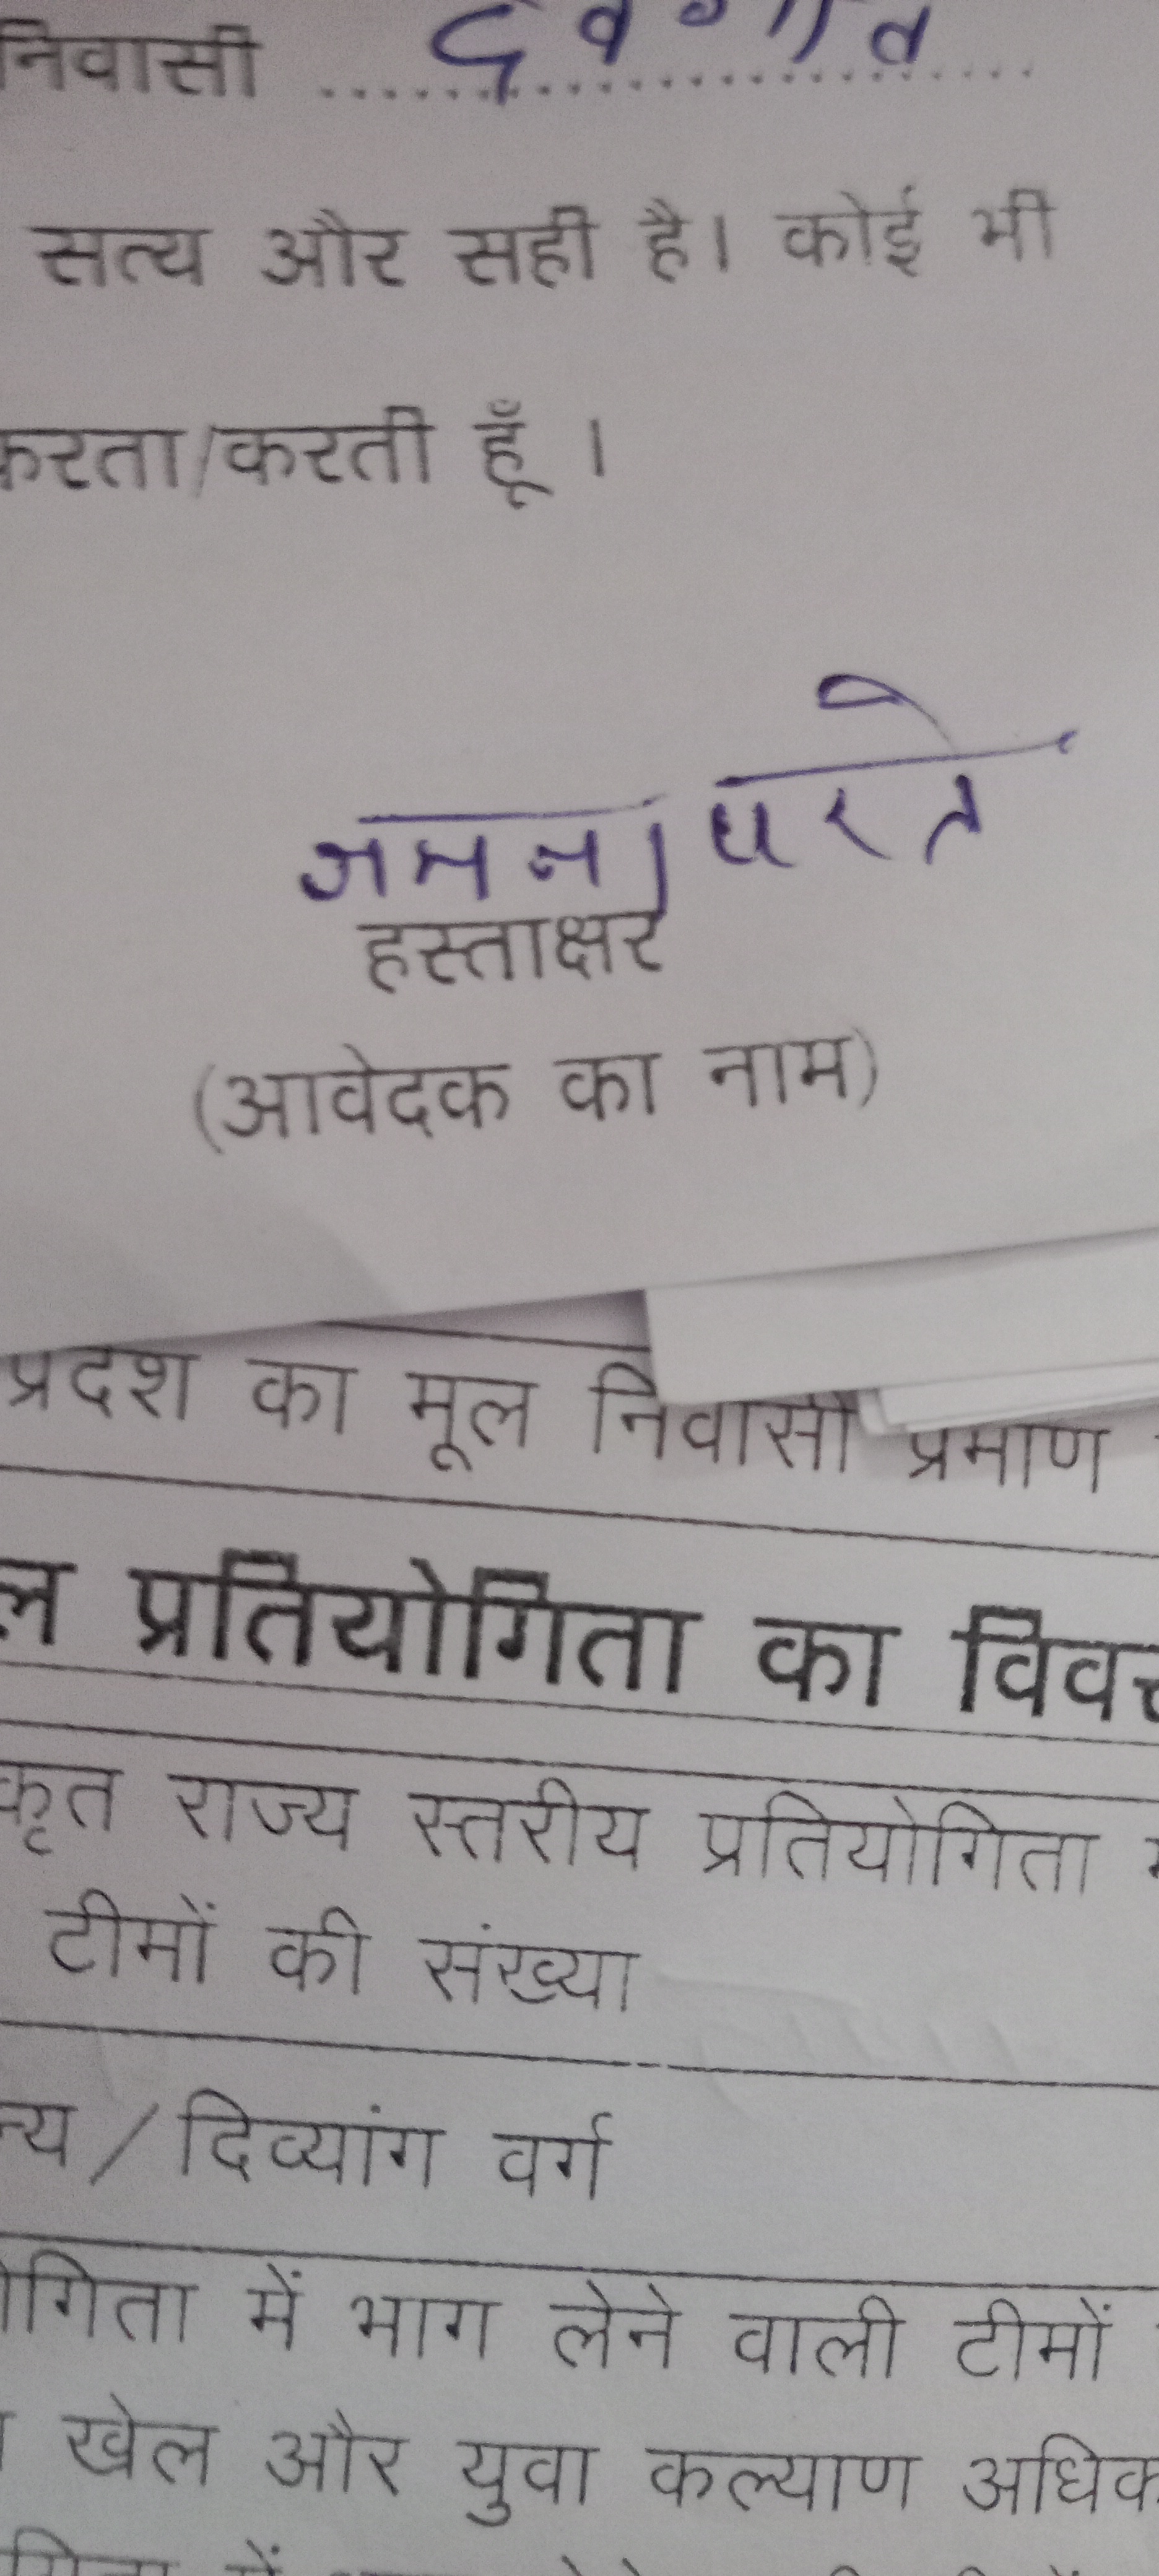 निवासी ..............................
सत्य और सही है। कोई भी
करता/करती हूँ ।
जमना परते
हस्ताक्षर
(आवेदक का नाम)
प्रदेश का मूल निवासी प्रमाण
प्रतियोगिता का
राज्य स्तरीय प्रतियोगिता
टीमों की संख्या
/ दिव्यांग वर्ग
में भाग लेने वाली टीमों
खेल और युवा कल्याण